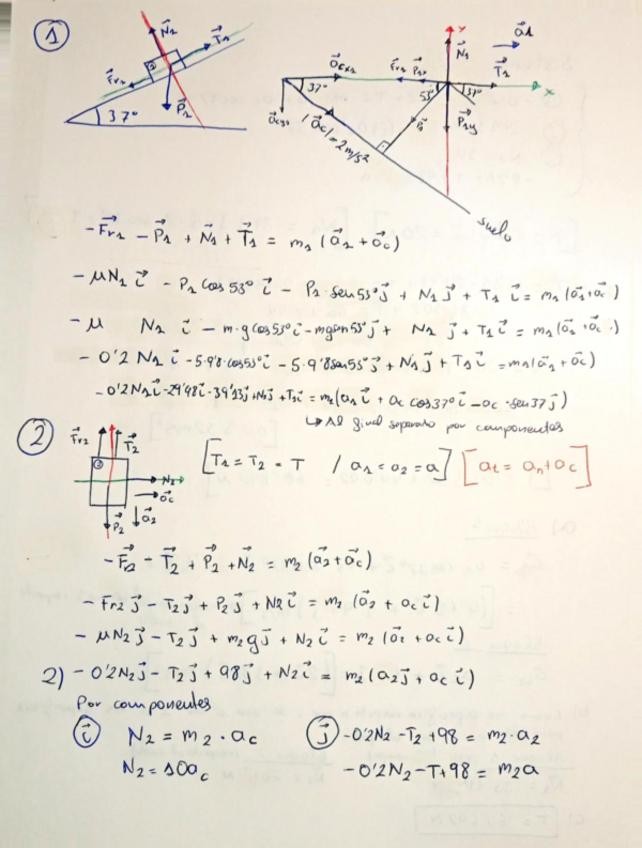 ①
N₁
T₁
Fr₁
1
P₁
37°
Y
N₁
a1
T₁
x
acx₁
Fr₁ P₁x
37°
53°
37°
P₁
P₁y
acy₁
|ac|=2m/s²
suelo
-Fr₁ - P₁ + N₁ + T₁ = m₁ (a₁ + ac)
- μN₁ i - P₁ cos 53° i - P₁ · sen 53° j + N₁ j + T₁ i = m₁ (a₁ + ac)
- μ N₁ i - m·g cos 53° i - mg sen 53° j + N₁ j + T₁ i = m₁ (a₁ + ac)
- 0'2 N₁ i - 5·9'8·cos53° i - 5·9'8 sen 53° j + N₁ j + T₁ i = m₁ (a₁ + ac)
- 0'2 N₁ i - 29'48 i - 39'13 j + N₁ j + T₁ i = m₁ (a₁ i + ac cos 37° i - ac · sen 37 j)
↳ Al final separato por componentes
②
Fr₂
T₂
2
N₂
ac
P₂
a₂
[T₁ = T₂ = T / a₁ = a₂ = a] [at = an + ac]
- Fr₂ - T₂ + P₂ + N₂ = m₂ (a₂ + ac)
- Fr₂ j - T₂ j + P₂ j + N₂ i = m₂ (a₂ + ac i)
- μN₂ j - T₂ j + m₂ g j + N₂ i = m₂ (a₂ + ac i)
2) - 0'2N₂ j - T₂ j + 98 j + N₂ i = m₂ (a₂ j + ac i)
Por componentes
i N₂ = m₂ · ac j -0'2N₂ - T₂ + 98 = m₂ · a₂
N₂ = 10ac -0'2N₂ - T + 98 = m₂a